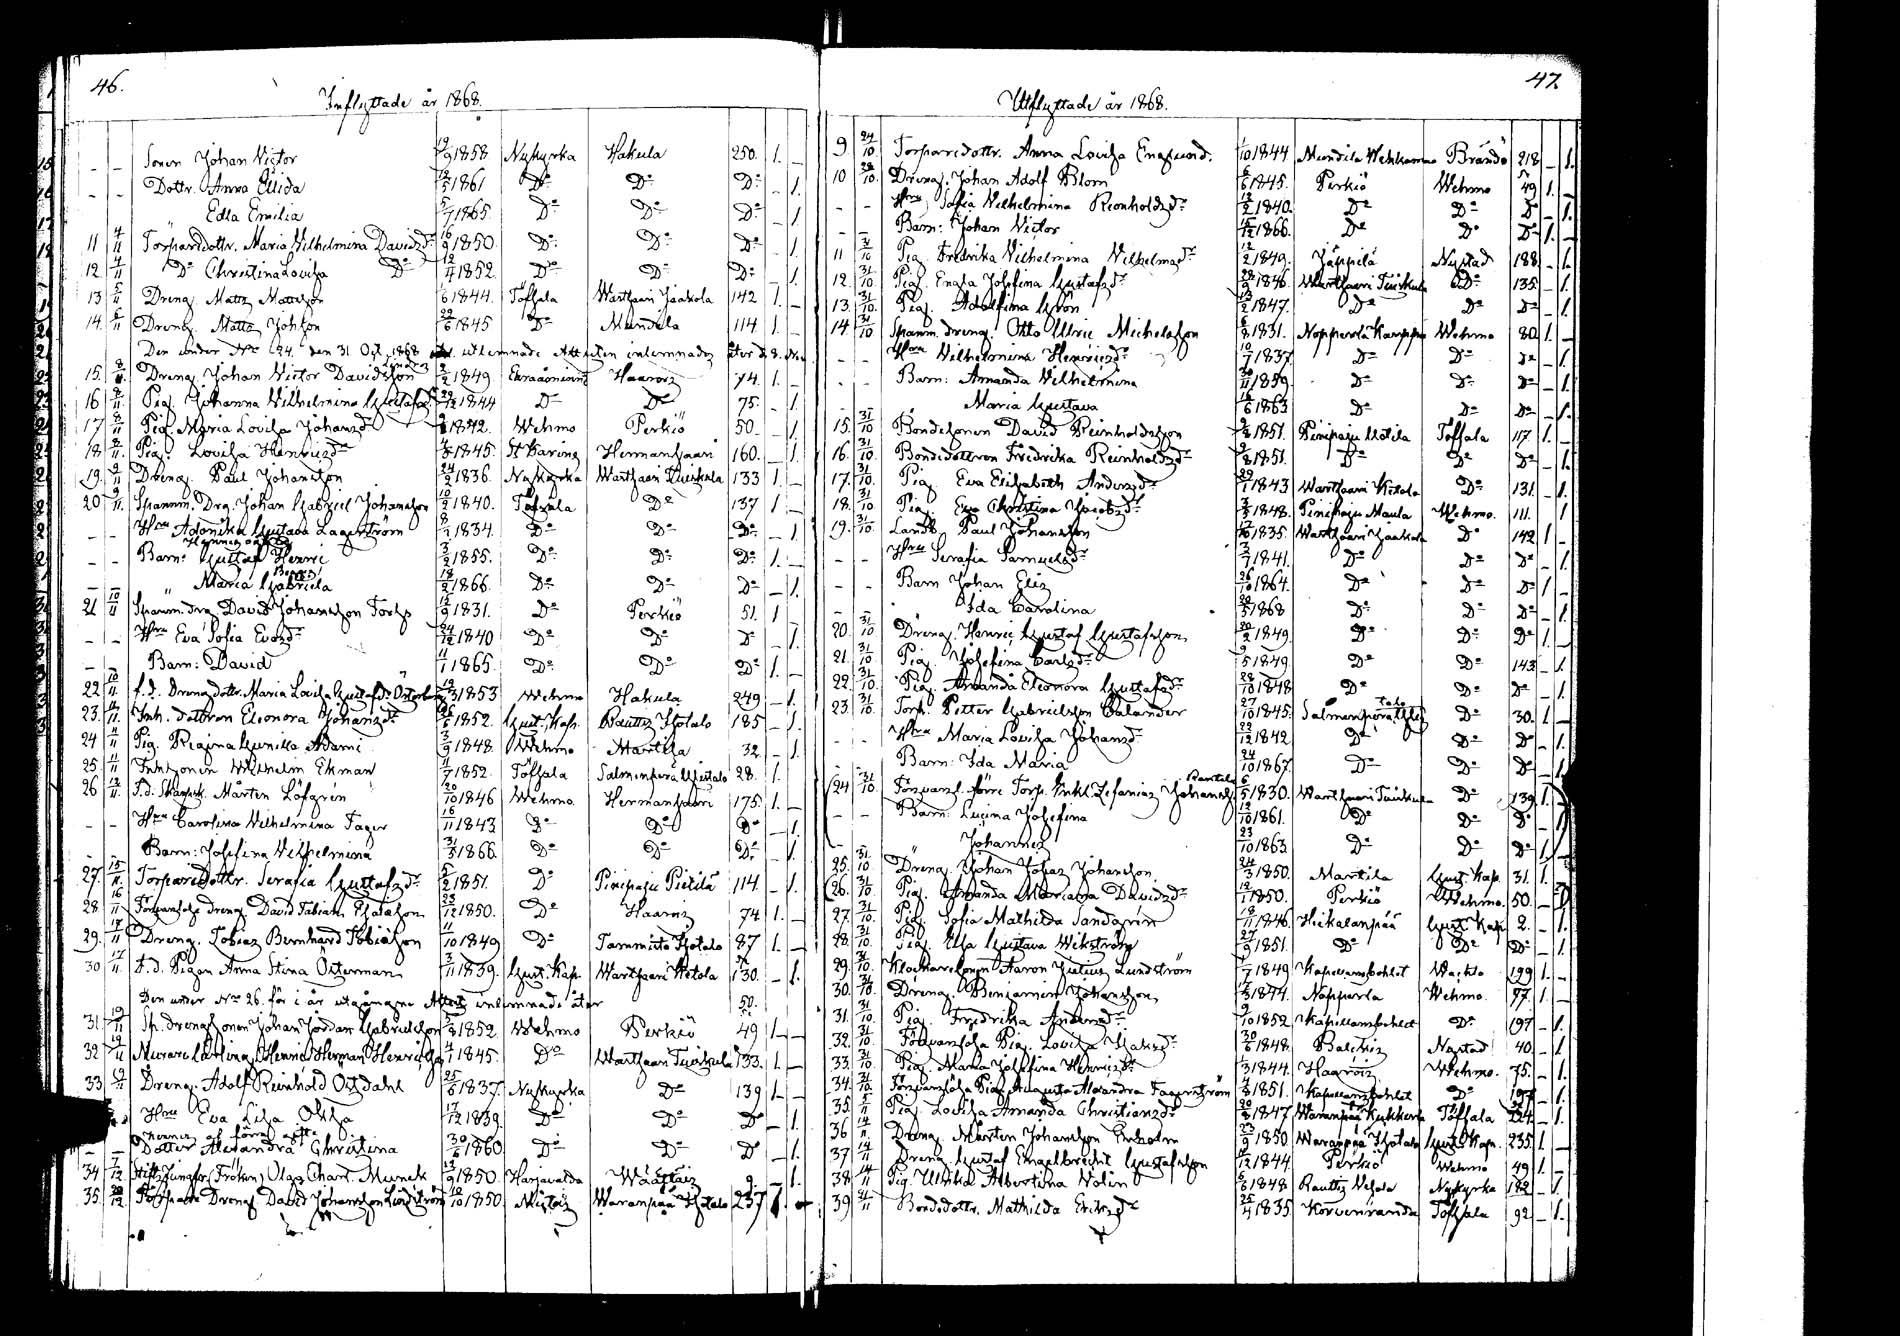 46.
Inflyttade år 1868.
- - Sonen Johan Victor 19/9 1858 Nykyrka Hakula 250. 1. -
- - Dottr. Anna Elida 1861 Do Do Do - 1.
Edla Emilia 5/7 1865. Do Do Do - 1.
11 4/11 Torparedottr. Maria Wilhelmina Davidsdr 16/9 1850. Do Do Do - 1.
12 4/11 Do Christina Lovisa Do 12/4 1852 Do Do Do - 1.
13 5/11 Dreng. Matts Mattsson 1844. Töfsala Wartsaari Jaakola 142 1. -
14. 6/11 Dreng. Matts Johsson 22/6 1845 Do Mundila 114 1. -
Den under No 24. den 31 Oct. 1868 utlemnade Attesten inlemnades åter d. 8. Nov.
15. 8/11 Dreng Johan Victor Davidsson 2/2 1849 Haarois 74. 1. -
16 8/11 Pig. Johanna Wilhelmina Gustafsdr 29/12 1844 Do Do 75. - 1.
17 8/11 Pig. Maria Lovisa Johansdr 1842. Wehmo Perkiö 50. - 1.
18 8/11 Pig. Lovisa Henricsdr 4/8 1845. St Karins Hermansaari 160. - 1.
19. 9/11 Dreng. Paul Johansson 24/2 1836. Nykyrka Wartsaari Tuiskula 133 1. -
20 9/11 Spannm. Drg. Johan Gabriel Johansson 10/2 1840. Töfsala Do 137 1. -
- - Hru Adamika Gustava Lagerström 8/ 1834. Do Do Do - 1.
- - Barn: Gustaf Henric 3/2 1855. Do Do Do 1. -
" Maria Gabriela 18/2 1866. Do Do Do - 1.
21 10/11 Spannm. drg. David Johansson Forss 12/9 1831. Do Perkiö 51. 1 -
- - Hru Eva Sofia Evasdr 24/12 1840 Do Do Do - 1.
- - Barn: David 11/1 1865. Do Do Do 1 -
22 10/11 f.d. Drengdottr. Maria Lovisa Gustafsdr Österberg 19/3 1853 Wehmo Hakula 249 - 1.
23. 11/11 Inh. dottren Eleonora Johansdr 1852. Gust. Kap. Rautis Ylotalo 185 - 1.
24 11/11 Pig. Regina Gunilla Adami 3/9 1848. Wehmo Mantila 32 - 1.
25 11/11 Inh.sonen Wilhelm Ekman 11/7 1852. Töfsala Salmenperä Ylistalo 28. 1. -
26 12/11 F.d. Mårten Löfgrén 20/10 1846 Wehmo. Hermansaari 175. 1. -
- - Hru Carolina Wilhelmina Fager 16/11 1843 Do Do Do - 1.
- - Barn: Josefina Wilhelmina 31/3 1866. Do Do Do - 1.
27. 15/11 Torparedottr. Serafia Gustafsdr 1851. Do Pinipaju Pietilä 114. - 1.
28 16/11 Försvarslöse dreng. David Fabian Esaiasson 23/12 1850. Do Haarois 74 1. -
29. 17/11 Dreng. Tobias Bernhard Tobiasson 11/10 1849 Do Tammisto Ylotalo 87 1. -
30 17/11 f.d. Pigan Anna Stina Österman 3/11 1839. Gust. Kap. Wartsaari Ketola 130. - 1.
Den under No 26. för i år utgångne Attest inlemnade åter 50.
31. 19/11 Sp. drengsonen Johan Jordan Gabrielsson 5/3 1852 Wehmo Perkiö 49 1 -
32 19/11 Murare Lärling. Henric Herman Henricsson 4/1 1845. Do Wartsaari Tuiskula 133. 1. -
33 19/11 Dreng. Adolf Reinhold Östdahl 25/6 1837. Nykyrka Do 139 1. -
Hru Eva Lisa Do 17/12 1839. Do Do Do - 1.
Dotter Alexandra Christina 30/6 1860 Do Do Do - 1.
34 7/12 Stifts Jungfr. (Fröken) Olga Charl. Munck 1850. Harjavalda 9. - 1.
35. 20/12 Torpare Dreng David Johansson Lindström 10/10 1850. Waranpää Ylotalo 237 1. -

47.
Utflyttade år 1868.
9 24/10 Torparedottr. Anna Lovisa Englund. 1/10 1844 Mundila Brändö 218 - 1.
10 28/10 Dreng. Johan Adolf Blom 6/6 1845. Perkiö Wehmo 49 1. -
- - Hru Sofia Wilhelmina Reinholdsdr 12/2 1840. Do Do Do - 1.
- - Barn: Johan Victor 15/12 1866. Do Do Do 1. -
11 31/10 Pig. Fredrika Wilhelmina Wilhelmsdr 12/2 1849. Jäppilä Nystad 188 - 1.
12. 31/10 Pig. Engla Josefina Gustafsdr 28/9 1846. Wartsaari Tuiskula Do 135. - 1.
13. 31/10 Pig. Adolfina Grön 13/2 1847. Do Do Do - 1.
14 31/10 Spannm. dreng. Otto Ulric Michelsson 6/8 1831. Nopperla Karppu Wehmo 80 1. -
- - Hru Wilhelmina Henricsdr 10/7 1837. Do Do Do - 1.
- - Barn: Amanda Wilhelmina 30/11 1859. Do Do Do - 1.
- Maria Gustava 16/6 1863 Do Do Do - 1.
15. 31/10 Bondesonen David Reinholdsson 1851. Pinipaju Uotila Töfsala 117. 1. -
16. 31/10 Bondedottren Fredrika Reinholdsdr 9/8 1851. Do Do Do - 1.
17. 31/10 Pig. Eva Elisabeth Andersdr 29/1 1843 Wartsaari Ketola Do 131. - 1.
18. 31/10 Pig. Eva Christina Jacobsdr 3/3 1848. Pinipaju Maula Wehmo. 111. - 1
19. 31/10 Landb. Paul Johansson 1835. Wartsaari Jaakola Do 142 1. -
- - Hru Serafia Samuelsdr 3/7 1841. Do Do Do - 1.
- - Barn Johan Elis 26/10 1864. Do Do Do 1 -
Ida Carolina 20/3 1868 Do Do Do - 1.
20. 31/10 Dreng. Henric Gustaf Gustafsson 20/2 1849. Do Do Do 1. -
21. 31/10 Pig. Josefina Carlsdr 9/5 1849. Do Do 143 - 1.
22. 31/10 Pig. Amanda Eleonora Gustafsdr 28/10 1848 Do Do Do - 1.
23 31/10 Torp. Petter Gabrielsson Calander 27/10 1845. Salmenperä Ylis talo Do 30. 1. -
- - Hru Maria Lovisa Johansdr 22/12 1842 Do Do Do - 1.
- - Barn: Ida Maria 24/10 1867. Do Do Do - 1.
(24 31/10 Försvarsl. förre Torp. Enkl. Zefanias Johansson Rantala 6/5 1830. Wartsaari Tuiskula Do 139 1. -
- - Barn: Lucina Josefina 12/10 1861. Do Do Do - 1.
Johannes 23/10 1863 Do Do Do 1. -
25. 31/10 Dreng. Johan Johansson 24/3 1850. Mantila Gust. Kap. 31. 1. -
(26. 31/10 Pig. Amanda Mariana Davidsdr 12/1 1850. Perkiö Wehmo. 50. -
27. 31/10 Pig. Sofia Mathilda Sandgrén 18/11 1846. Hiekalanpää Gust. Kap. 2. - 1.
28. 31/10 Pig. Elsa Gustava Wikström 27/9 1851. Do Do Do - 1.
29. 31/10 Klockaresonen Aaron Julius Lundström 1/7 1849 Kapellansbohlet 199 1. -
30. 31/10 Dreng. Benjamin Johansson 1844. Nopperla Wehmo. 77. 1. -
31. 31/10 Pig. Fredrika Andersdr 9/10 1852 Kapellansbohlet Do 197 - 1.
32. 31/10 Försvarslösa Pig. Lovisa Isaksdr 30/6 1848. Balchis Nystad 40. - 1.
33. 31/10 Pig. Maria Josefina Henricsdr 1/3 1844. Haarois Wehmo. 75. - 1.
34. 31/10 Försvarslösa Pig. Augusta Alexandra Fagerström 1851. Kapellansbohlet Do 197 - 1.
35. 5/11 Pig. Lovisa Amanda Christiansdr 20/8 1847 Waranpää Kykkerla Töfsala 224. - 1.
36 12/11 Dreng. Mårten Johansson Enholm 23/9 1850 Waranpää Ylotalo Gust. Kap. 235. 1. -
37 14/11 Dreng. Gustaf Engelbrecht Gustafsson 1844. Perkiö Wehmo 49 1. -
38 14/11 Pig. Ulrika Albertina Wolin 6/6 1848 Rautis Wesala Nykyrka 182 - 1.
39 21/11 Bondedottr. Mathilda Ericsdr 25/4 1835 Korvenranda Töfsala 92 - 1.